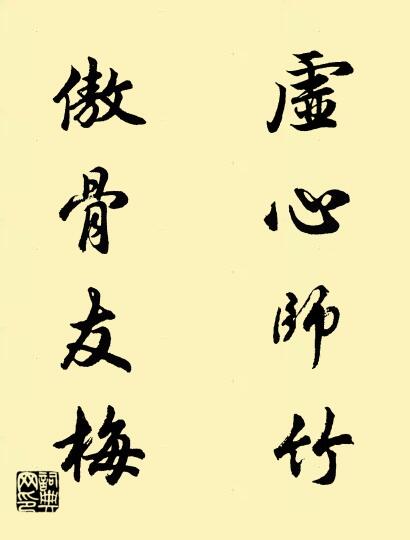 虛心師竹
傲骨友梅
詞典
网